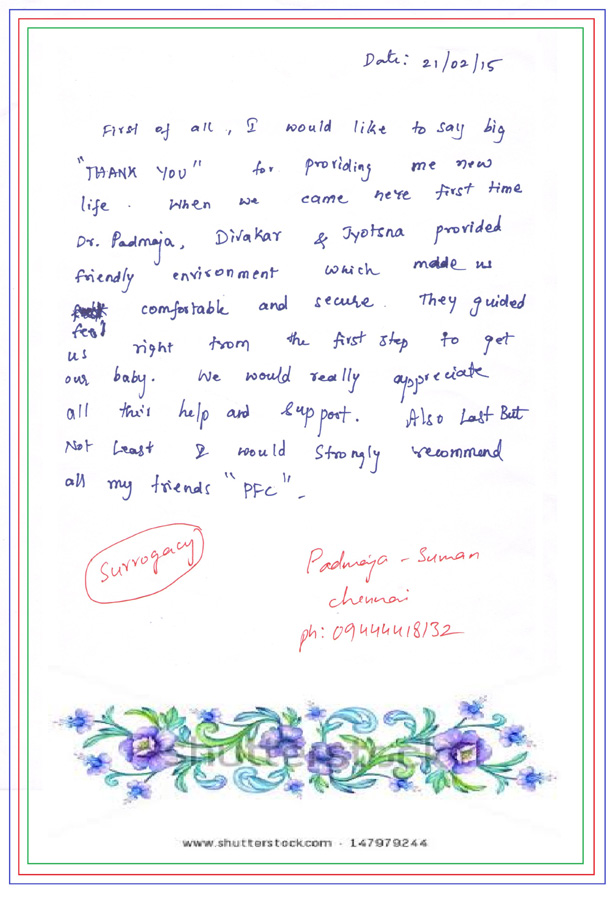 Date: 21/02/15
First of all, I would like to say big
"THANK YOU" for providing me new
life. When we came here first time
Dr. Padmaja, Divakar & Jyotsna provided
friendly environment which made us
feel comfortable and secure. They guided
us right from the first step to get
our baby. We would really appreciate
all their help and support. Also Last But
Not Least I would Strongly recommend
all my friends "PFC".
Surrogacy
Padmaja - Suman
Chennai
ph: 09444418132
shutterstock
www.shutterstock.com · 147979244